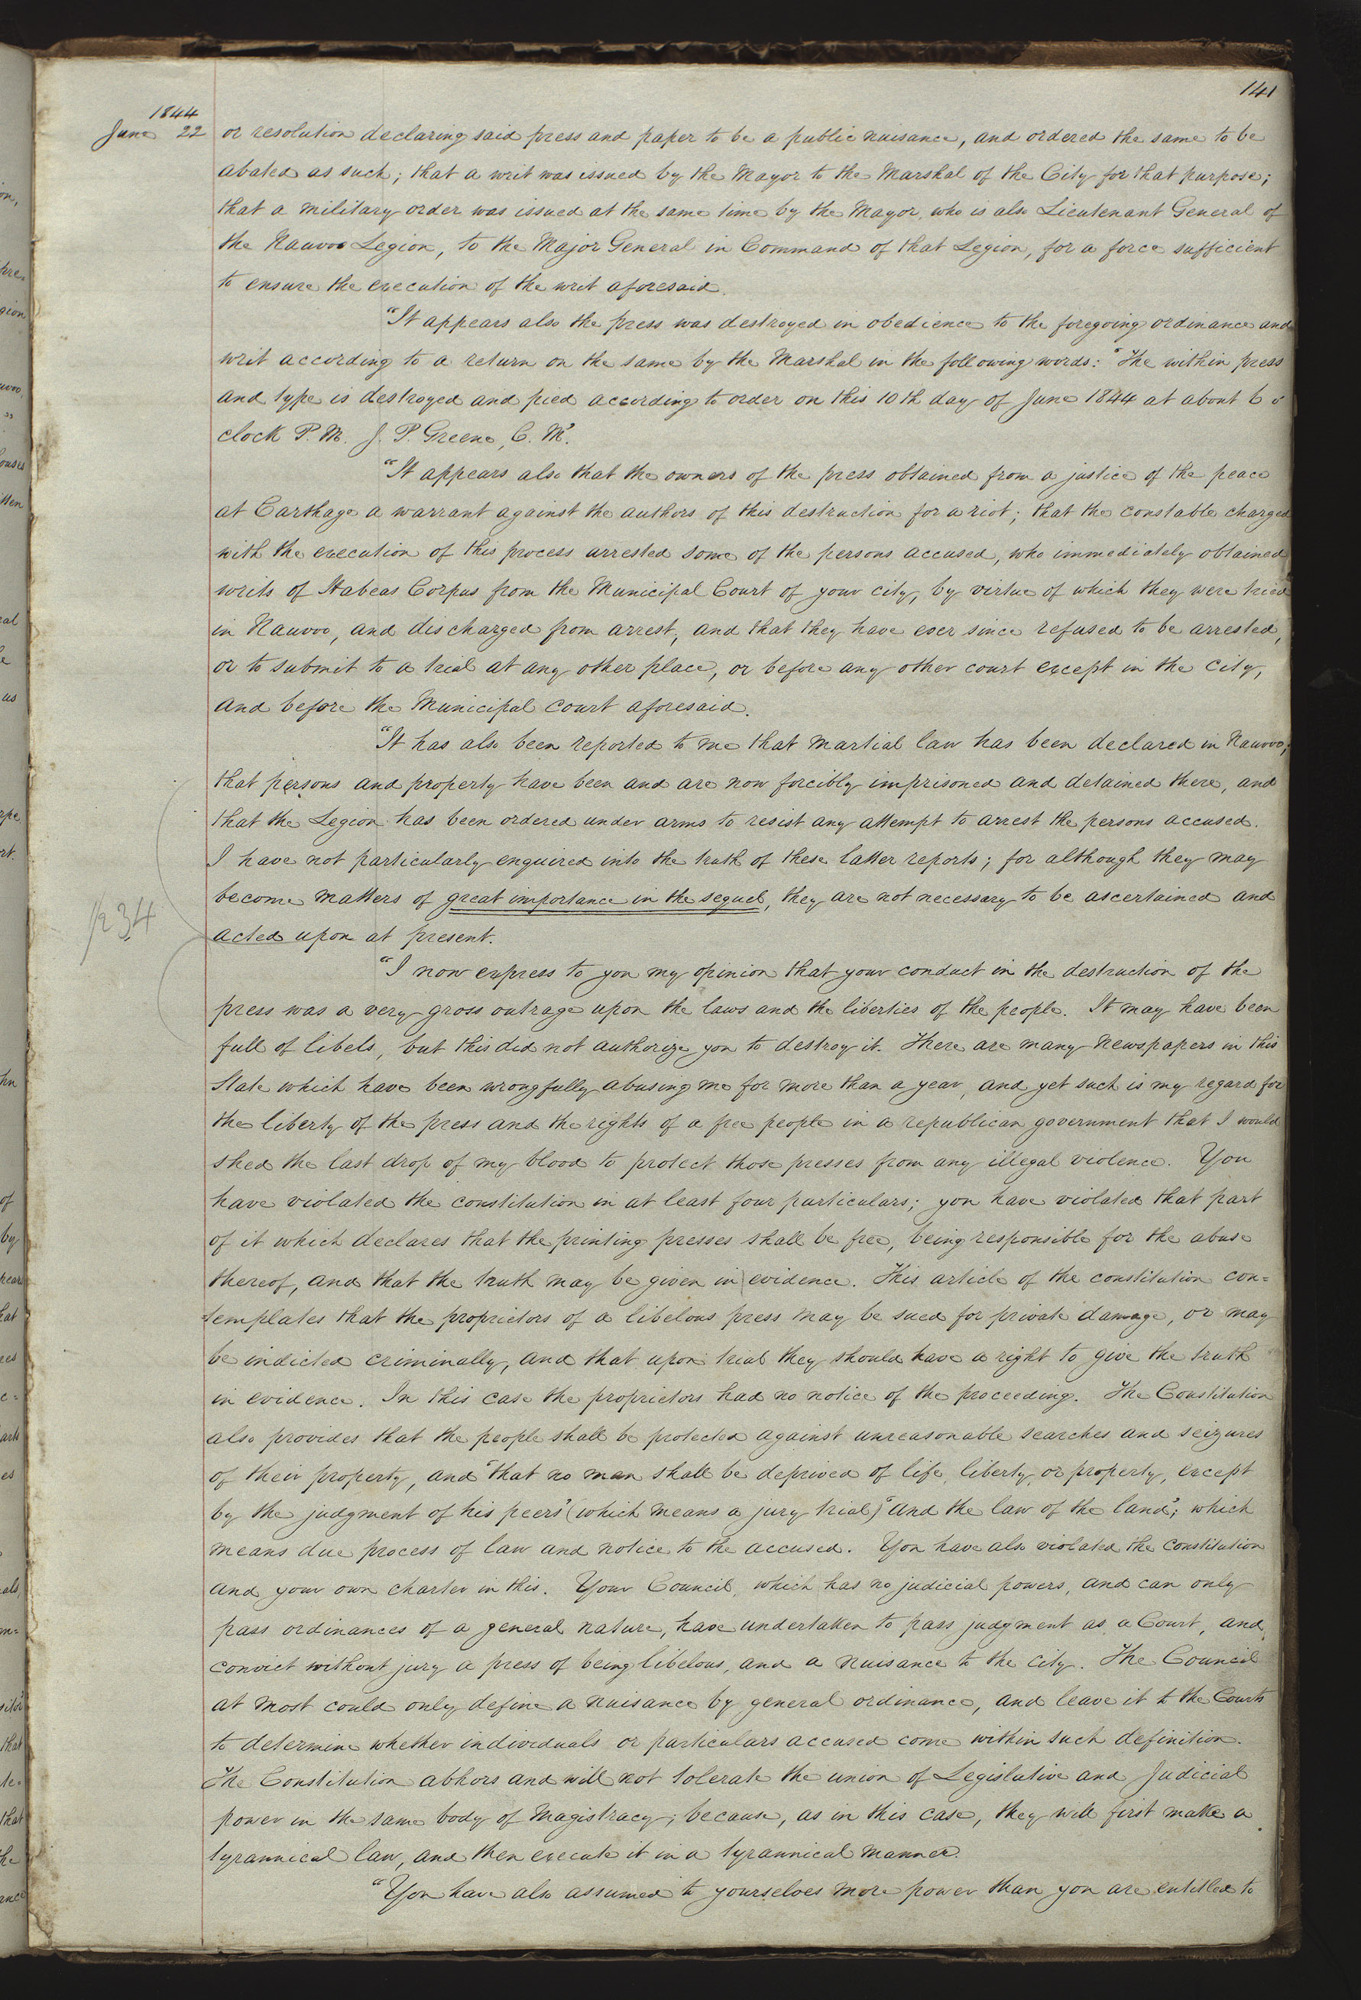 141
1844
June 22 or resolution declaring said press and paper to be a public nuisance, and ordered the same to be
abated as such; that a writ was issued by the Mayor to the Marshal of the City for that purpose;
that a military order was issued at the same time by the Mayor, who is also Lieutenant General of
the Nauvoo Legion, to the Major General in Command of that Legion, for a force sufficient
to ensure the execution of the writ aforesaid.
"It appears also the press was destroyed in obedience to the foregoing ordinance and
writ according to a return on the same by the Marshal in the following words: "The within press
and type is destroyed and pied according to order on this 10th day of June 1844 at about 6 o'
clock P. M. J. P. Greene, C. M".
"It appears also that the owners of the press obtained from a justice of the peace
at Carthage a warrant against the authors of this destruction for a riot; that the constable charged
with the execution of this process arrested some of the persons accused, who immediately obtained
writs of Habeas Corpus from the Municipal Court of your city, by virtue of which they were tried
in Nauvoo, and discharged from arrest, and that they have ever since refused to be arrested,
or to submit to a trial at any other place, or before any other court except in the city,
and before the Municipal court aforesaid.
"It has also been reported to me that martial law has been declared in Nauvoo;
that persons and property have been and are now forcibly imprisoned and detained there, and
that the Legion has been ordered under arms to resist any attempt to arrest the persons accused.
I have not particularly enquired into the truth of these latter reports; for although they may
become matters of great importance in the sequel, they are not necessary to be ascertained and
acted upon at present.
"I now express to you my opinion that your conduct in the destruction of the
press was a very gross outrage upon the laws and the liberties of the people. It may have been
full of libels, but this did not authorize you to destroy it. There are many newspapers in this
State which have been wrongfully abusing me for more than a year, and yet such is my regard for
the liberty of the press and the rights of a free people in a republican government that I would
shed the last drop of my blood to protect those presses from any illegal violence. You
have violated the constitution in at least four particulars; you have violated that part
of it which declares that the printing presses shall be free, being responsible for the abuse
thereof, and that the truth may be given in evidence. This article of the constitution con=
templates that the proprietors of a libelous press may be sued for private damage, or may
be indicted criminally, and that upon trial they should have a right to give the truth
in evidence. In this case the proprietors had no notice of the proceeding. The Constitution
also provides that the people shall be protected against unreasonable searches and seizures
of their property, and "that no man shall be deprived of life, liberty, or property, except
by the judgment of his peers" (which means a jury trial) "and the law of the land"; which
means due process of law and notice to the accused. You have also violated the constitution
and your own charter in this. Your Council, which has no judicial powers, and can only
pass ordinances of a general nature, have undertaken to pass judgment as a Court, and
convict without jury a press of being libelous, and a nuisance to the city. The Council
at most could only define a nuisance by general ordinance, and leave it to the Courts
to determine whether individuals or particulars accused come within such definition.
The Constitution abhors and will not tolerate the union of Legislative and Judicial
power in the same body of Magistracy; because, as in this case, they will first make a
tyrannical law, and then execute it in a tyrannical manner.
"You have also assumed to yourselves more power than you are entitled to